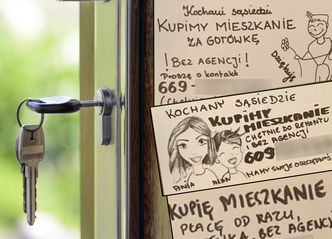 Kochani sąsiedzi
KUPIMY MIESZKANIE
ZA GOTÓWKĘ,
BEZ AGENCJI!
Proszę o kontakt
669-
Dziękuję
KOCHANY SĄSIEDZIE
KUPIMY
MIESZKANIE
CHĘTNIE DO REMONTU
BEZ AGENCJI!
609
MAMY SWOJE OSZCZĘDNOŚCI
ALAN
KUPIĘ MIESZKANIE
PŁACĘ OD RAZU,
BEZ AGENCJI